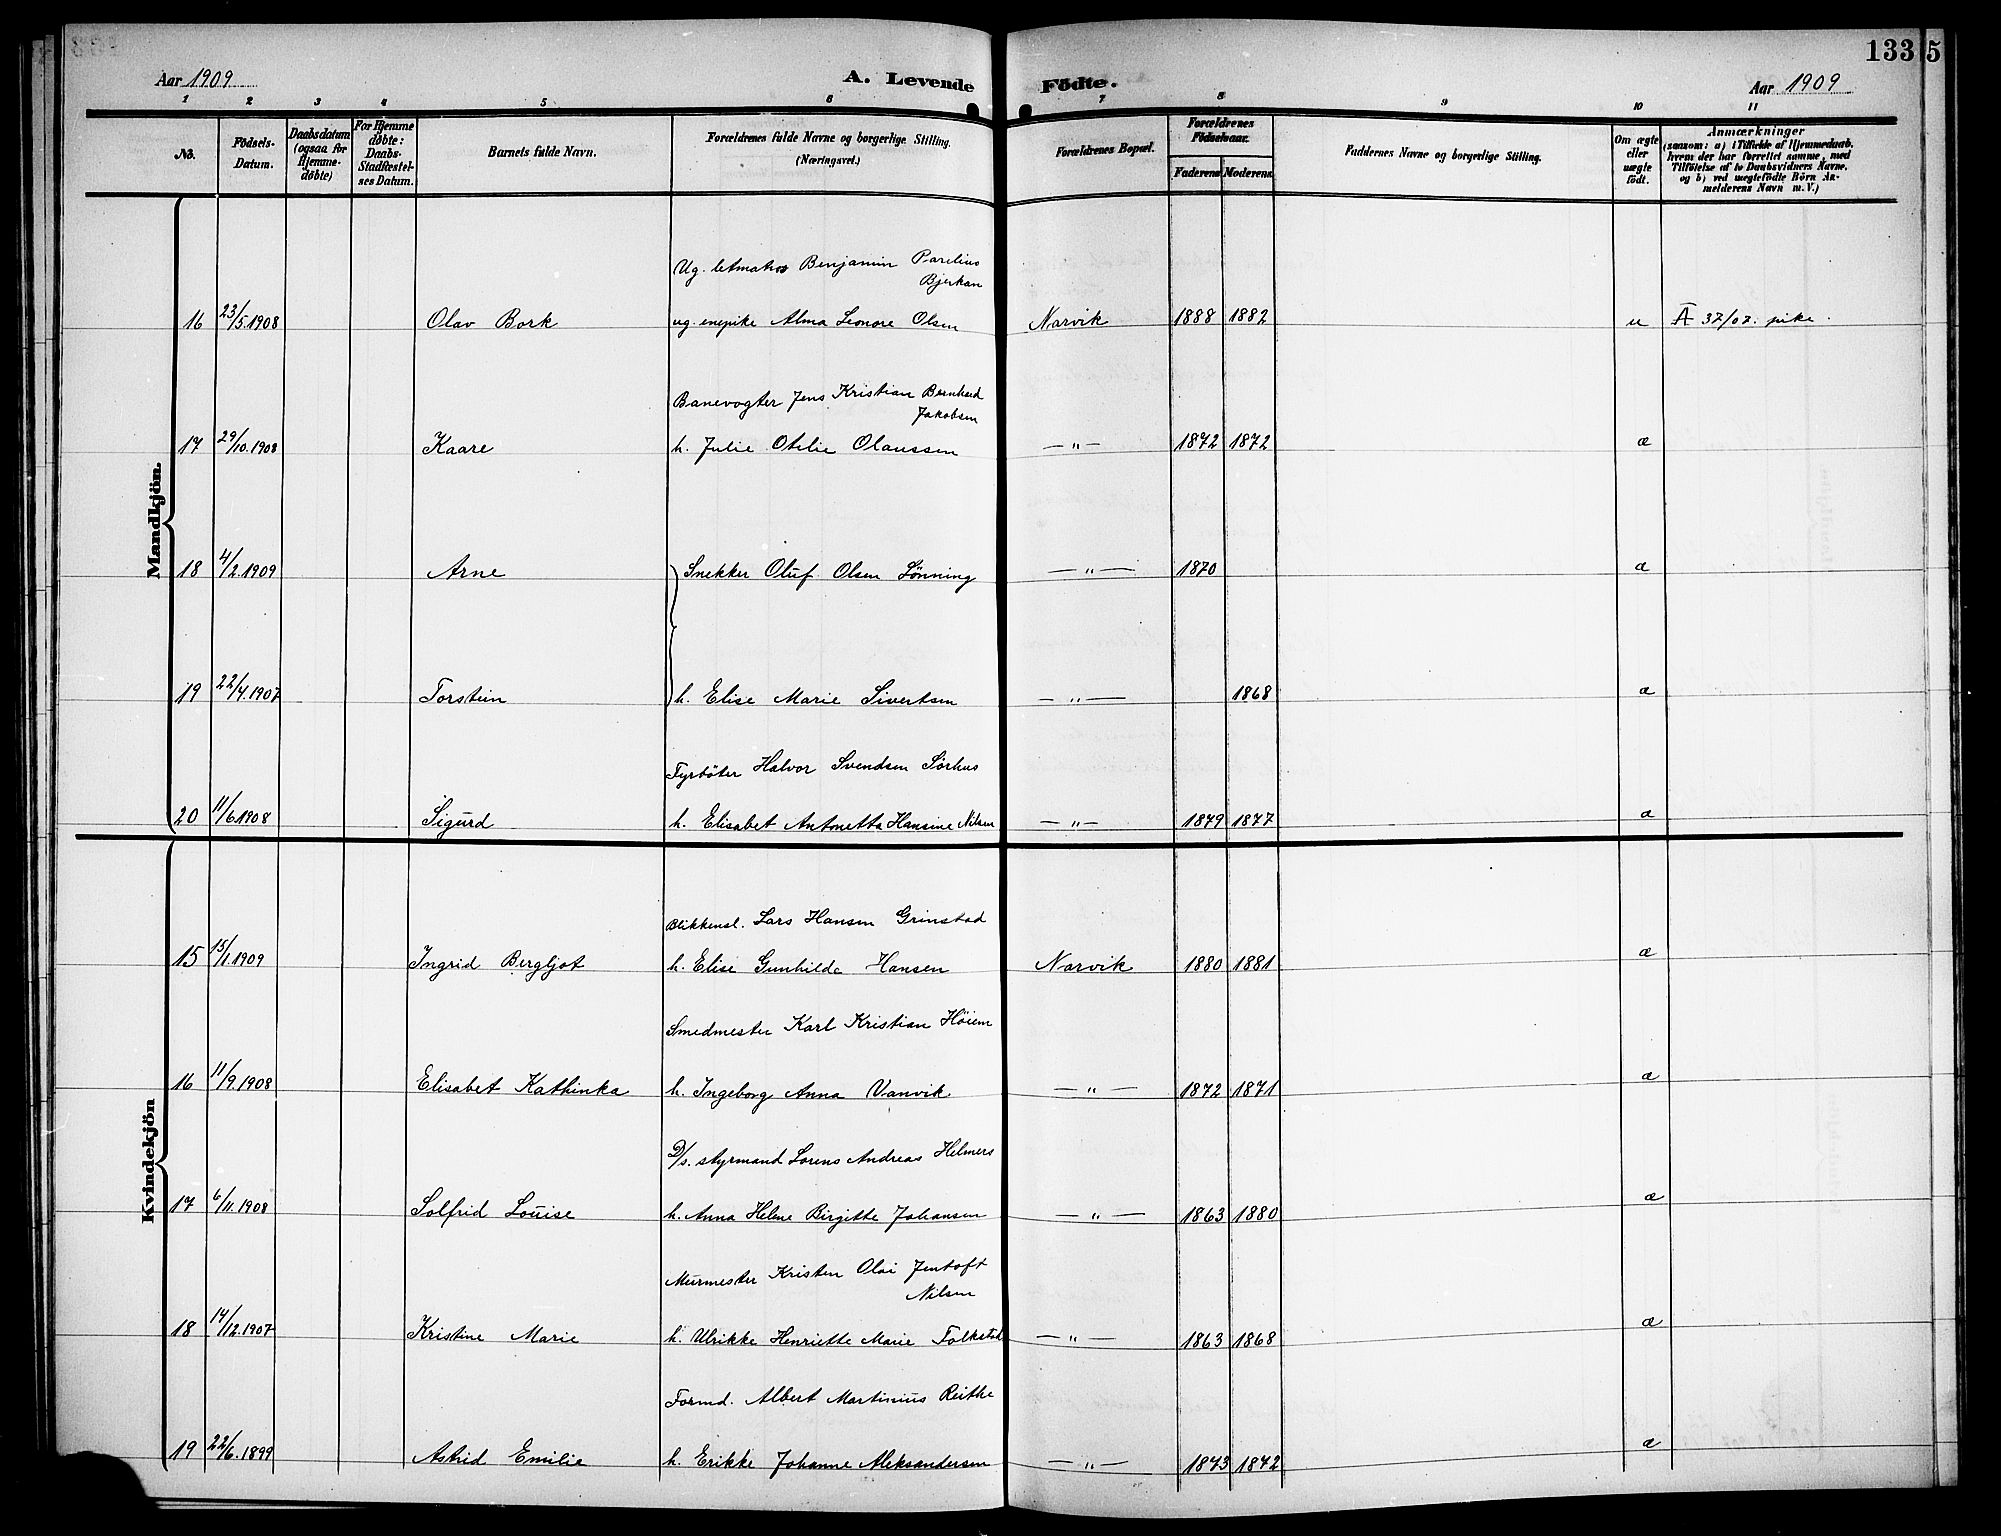 133 5
Aar 1909 A. Levende Fødte. Aar 1909
1 2 3 4 5 6 7 8 9 10 11
No.
Födsels-Datum.
Daabsdatum (ogsaa for Hjemme-döbte)
For Hjemme döbte: Daabs-Stadfæstel-ses Datum.
Barnets fulde Navn.
Forældrenes fulde Navne og borgerlige Stilling. (Næringsvei.)
Forældrenes Bopæl.
Forældrenes Födselsaar.
Faderens Moderens
Faddernes Navne og borgerlige Stilling.
Om ægte eller uægte födt.
Anmærkninger
(saasom: a) i Tilfælde af Hjemmedaab, hvem der har forrettet samme, med Tilföielse af to Daabsvidners Navne, og b) ved uægtefödte Börn An-melderens Navn m. V.)
Mandkjön.
Ug. letmatros Benjamin Parelius
Bjerkan
16 23/5.1908 Olav Bork ug. enepike Alma Leonore Olsen Narvik 1888 1882 u A 37/07. pike.
Banevogter Jens Kristian Bernhard
Jakobsen
17 29/10.1908 Kaare h. Julie Otelie Olaussen —"— 1872 1872 æ
18 4/2.1909 Arne Snekker Oluf Olsen Lönning —"— 1870 æ
19 22/4.1907 Torstein h. Elise Marie Sivertsen —"— 1868 æ
Fyrböter Halvor Svendsen Sörhus
20 11/6.1908 Sigurd h. Elisabet Antonetta Hansine Nilsen —"— 1879 1877 æ
Kvindekjön
Blikkensl. Lars Hansen Grinstad
15 15/1.1909 Ingrid Bergljot h. Elise Gunhilde Hansen Narvik 1880 1881 æ
Smedmester Karl Kristian Höiem
16 11/9.1908 Elisabet Kathinka h. Ingeborg Anna Vanvik —"— 1872 1871 æ
D/s. styrmand Lorens Andreas Helmers
17 6/11.1908 Solfrid Louise h. Anna Helene Birgitte Johansen —"— 1863 1880 æ
Murmester Kristen Olai Jentoft
Nilsen
18 14/12.1907 Kristine Marie h. Ulrikke Henriette Marie Folkstad —"— 1863 1868 æ
Formd. Albert Martinius Reithe
19 22/6.1899 Astrid Emilie h. Erikke Johanne Aleksandersen —"— 1873 1872 æ